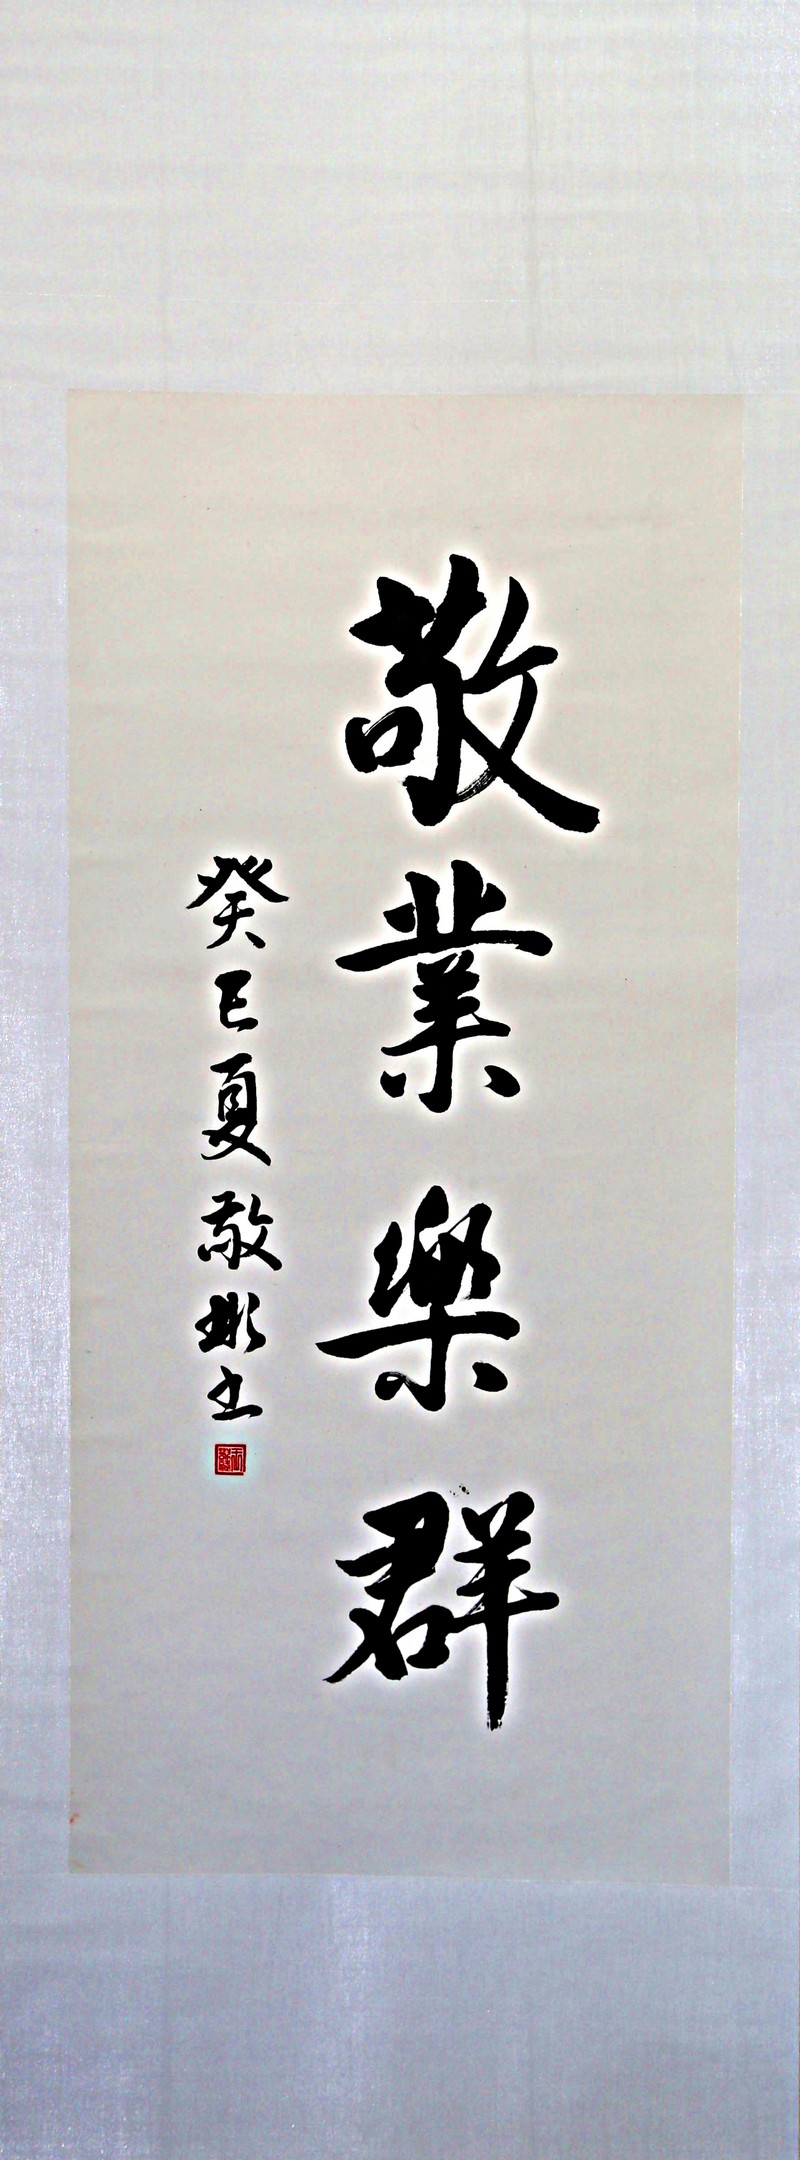 敬業樂群
癸巳夏敬彬土